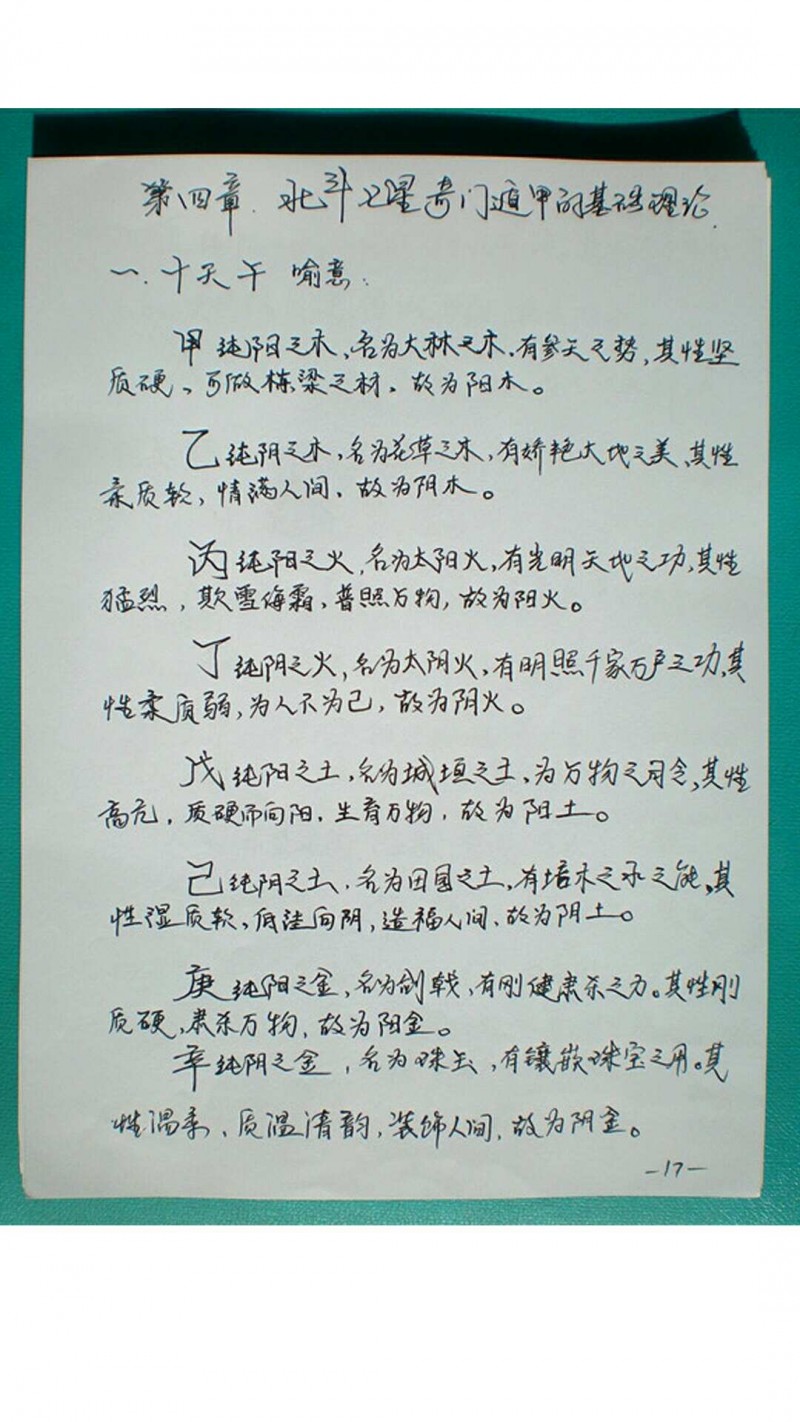 第四章. 北斗七星奇门遁甲的基础理论.
一. 十天干 喻意:
甲纯阳之木、名为大林之木.有参天之势,其性坚
质硬、可做栋梁之材、故为阳木。
乙纯阴之木,名为花草之木,有娇艳大地之美,其性
柔质软,情满人间、故为阴木。
丙纯阳之火,名为太阳火,有光明天地之功,其性
猛烈,欺雪侮霜,普照万物,故为阳火。
丁纯阴之火,名为太阴火,有明照千家万户之功,其
性柔质弱,为人不为己,故为阴火。
戊纯阳之土,名为城垣之土、为万物之司令,其性
高亢,质硬而向阳,生育万物,故为阳土。
己纯阴之土、名为田园之土,有培木之承之能,其
性湿质软、低洼向阴,造福人间、故为阴土。
庚纯阳之金,名为剑戟,有刚健肃杀之力。其性刚
质硬,肃杀万物,故为阳金。
辛纯阴之金,名为珠玉,有镶嵌珠宝之用。其
性温柔、质温清韵,装饰人间,故为阴金。
-17-